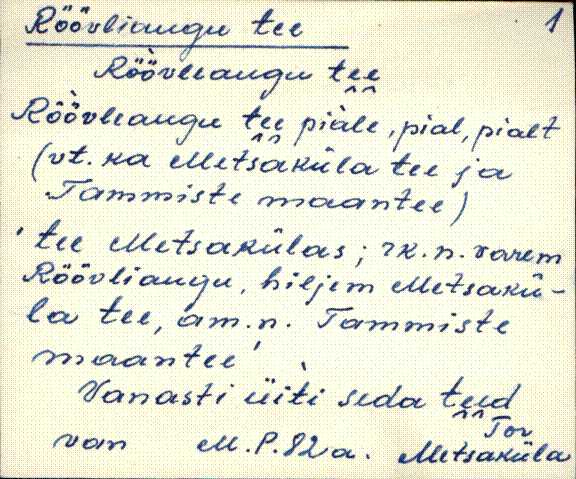 Röövliangu tee 1
Rö̀övleangu têê
Rö̀övleangu têê piäle, pial, pialt
(vt. ka Metsaküla tee ja
Tammiste maantee)
'tee Metsakülas; rk.n. varem
Röövliangu, hiljem Metsakü-
la tee, am.n. Tammiste
maantee'
Vanasti üitì seda têêd
Tor
van M.P. 82a. Metsaküla